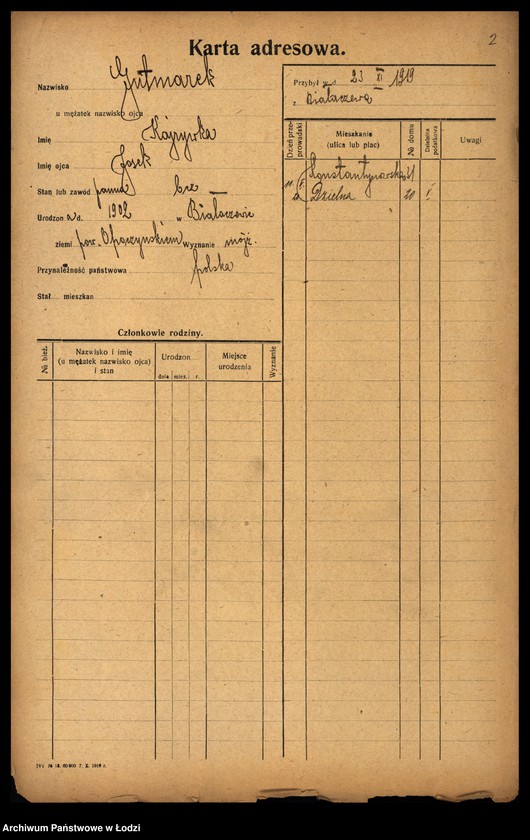 2
Karta adresowa.
Nazwisko Gutmarek
u mężatek nazwisko ojca
Imię
Imię ojca Josek
Stan lub zawód panna bez
Urodzon a d. 1902 w Białaczowie
ziemi pow. Opoczyńskiem Wyznanie mojż.
Przynależność państwowa polska
Stał. mieszkan
Przybył d. 23 XI 1919
z Białaczewa
Dzień przeprowadzki
Mieszkanie (ulica lub plac)
№ domu
Dzielnica podatkowa
Uwagi
Konstantynowska
Dzielna 20 I
Członkowie rodziny.
№ bież.
Nazwisko i imię
(u mężatek nazwisko ojca)
i stan
Urodzon
dnia mies. r.
Miejsce
urodzenia
Wyznanie
Archiwum Państwowe w Łodzi